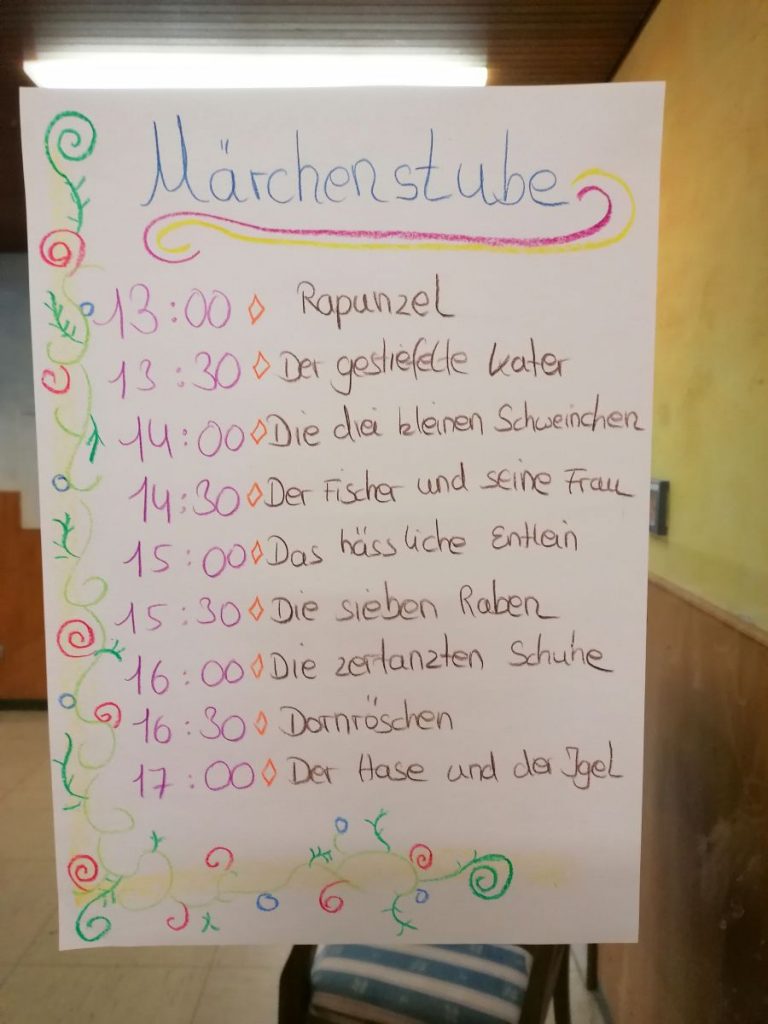 Märchenstube
13:00 ◊ Rapunzel
13:30 ◊ Der gestiefelte Kater
14:00 ◊ Die drei kleinen Schweinchen
14:30 ◊ Der Fischer und seine Frau
15:00 ◊ Das hässliche Entlein
15:30 ◊ Die sieben Raben
16:00 ◊ Die zertanzten Schuhe
16:30 ◊ Dornröschen
17:00 ◊ Der Hase und der Igel